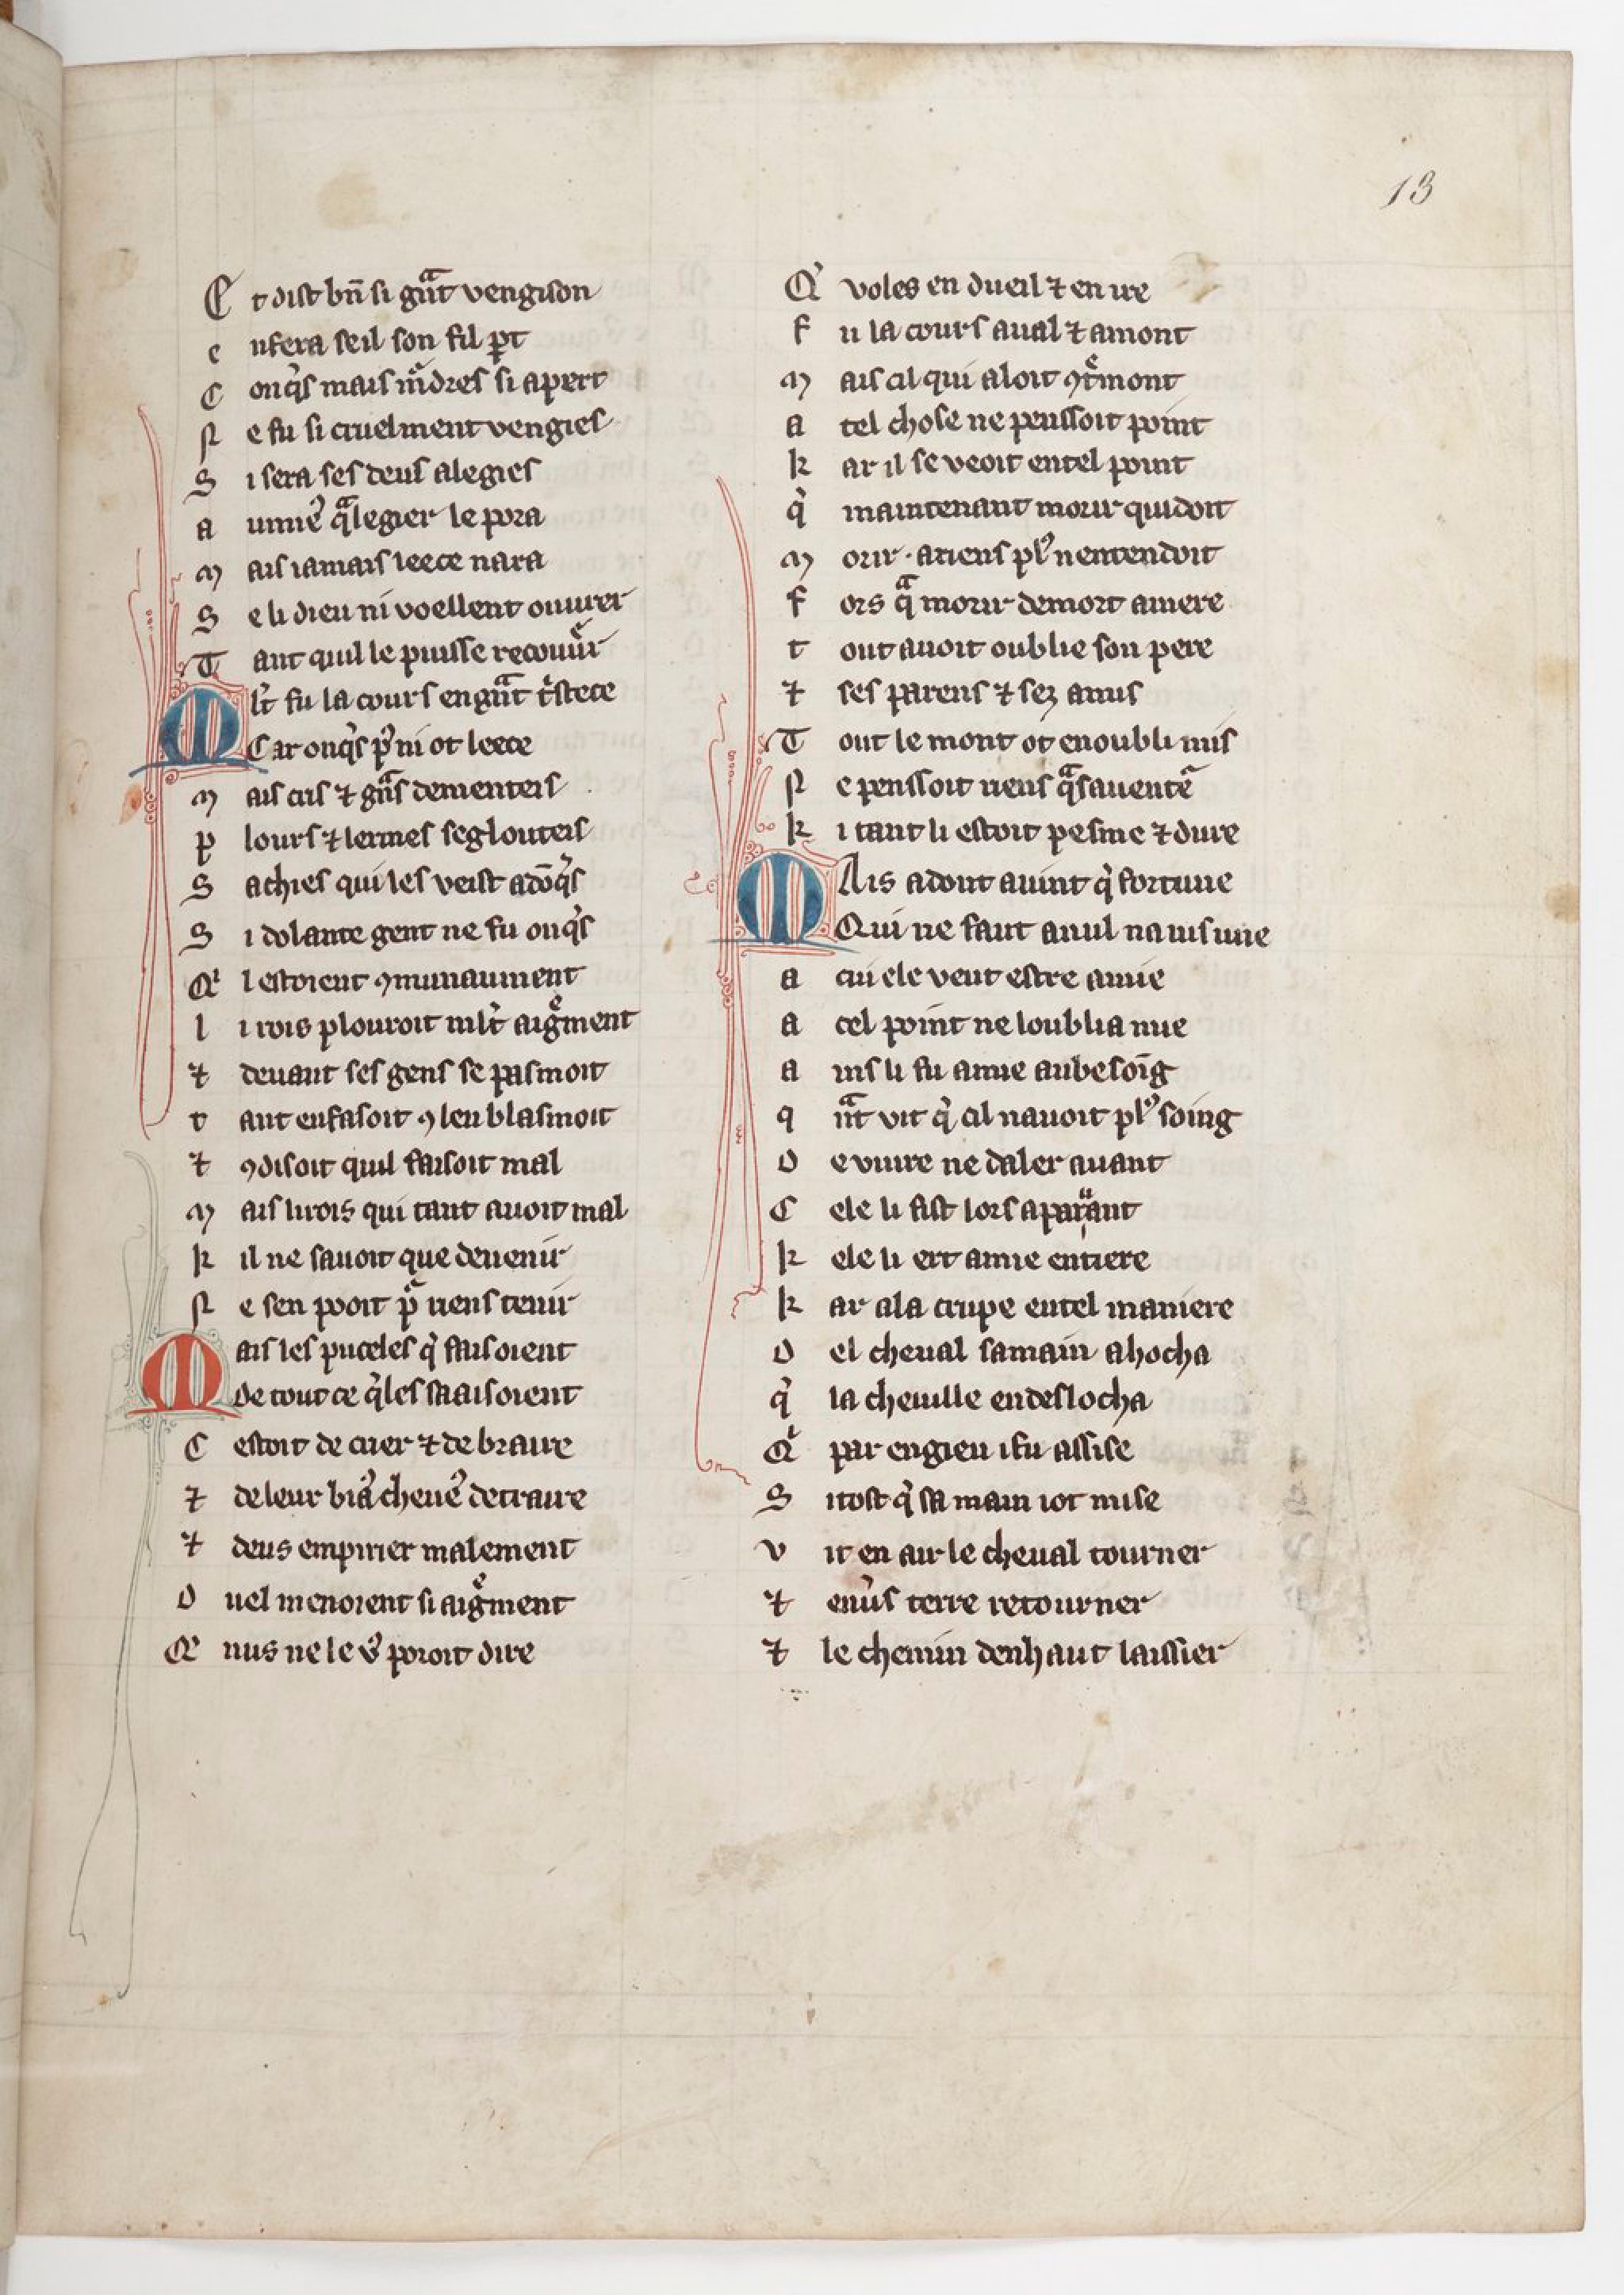 13
E t dist bn̄ si gͣnt vengison
e nfera seil son fil ꝑt
C onq̃s mais mͥdres si apert
N e fu si cruelment vengies
S i sera ses deus alegies
a umie᷒ qͣlegier le pora
M ais iamais leece nara
S e li dieu ni voellent ouurer
T ant quil le puisse recouũr
Ml̃t fu la cours en gͣnt tͥstece
Car onq̃s pͥ ni ot leece
M ais cris ⁊ gͣns dementeis
p lours ⁊ lermes seglouteis
S achies qui les veist adōq̃s
S i dolante gent ne fu onq̃s
Qͥ l estoient ꝯmunaument
l i rois plouroit ml̃t aigͤment
⁊ deuant ses gens se pasmoit
t ant en fasoit ꝯ len blasmoit
⁊ ꝯ disoit quil faisoit mal
M ais li rois qui tant auoit mal
k il ne sauoit que deuenir
N e sen pooit pͬ riens tenir
Mais les puceles q̃ faisoient
de tout ce q̃les saaisoient
C estoit de crier ⁊ de braire
⁊ de leur biāᷤ cheueᷤ detraire
⁊ deus empirier malement
D uel menoient si aigͤment
Qͤ nus ne le v᷒ poroit dire
Qͥ voles en dueil ⁊ en ire
F u la cours aual ⁊ amont
M ais cil qui aloit ꝯtͤmont
a tel chose ne penssoit point
k ar il se veoit entel point
q̃ maintenant morir quidoit
M orir · a riens pl᷒ nentendoit
F ors qͣ morir de mort amere
t out auoit oublie son pere
⁊ ses parens ⁊ sez amis
T out le mont ot en oubli mis
N e penssoit riens qͣ sauentͬe
k i tant li estoit pesme ⁊ dure
MAis adont auint q̃ fortune
Qui ne faut a nul na nisune
a cui ele veut estre amie
a cel point ne loublia mie
a ins li fu amie au besoīg
q nͣt vit q̃ cil nauoit pl᷒ soing
D e viure ne daler auant
C ele li fist lors aparant
k ele li ert amie entiere
k ar a la crupe en tel maniere
D el cheual samain ahocha
q̃ la cheuille en deslocha
Qͥ par engieu i fu assise
S itost q̃ sa main iot mise
v it en air le cheual tourner
⁊ enũs terre retourner
⁊ le chemin denhaut laissier